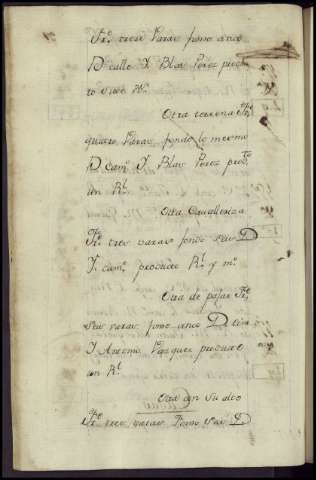 Fr.e tres Varas fondo cinco
D. calle Y. Blas Perez produ
Otra terrena Fr.e
quatro Varas fondo lo mesmo
D. cam.o Y. Blas Perez pro.e
un R.l
Otra Cavalleriza
Fr.e tres varas fondo seis D
Y. cam.o produce R.l y m.o
Otra de pajar Fr.e
seis varas fondo cinco D
Y Antonio Vazquez produce
un R.l
Otra con su alto
Fr.e tres varas fondo seis D